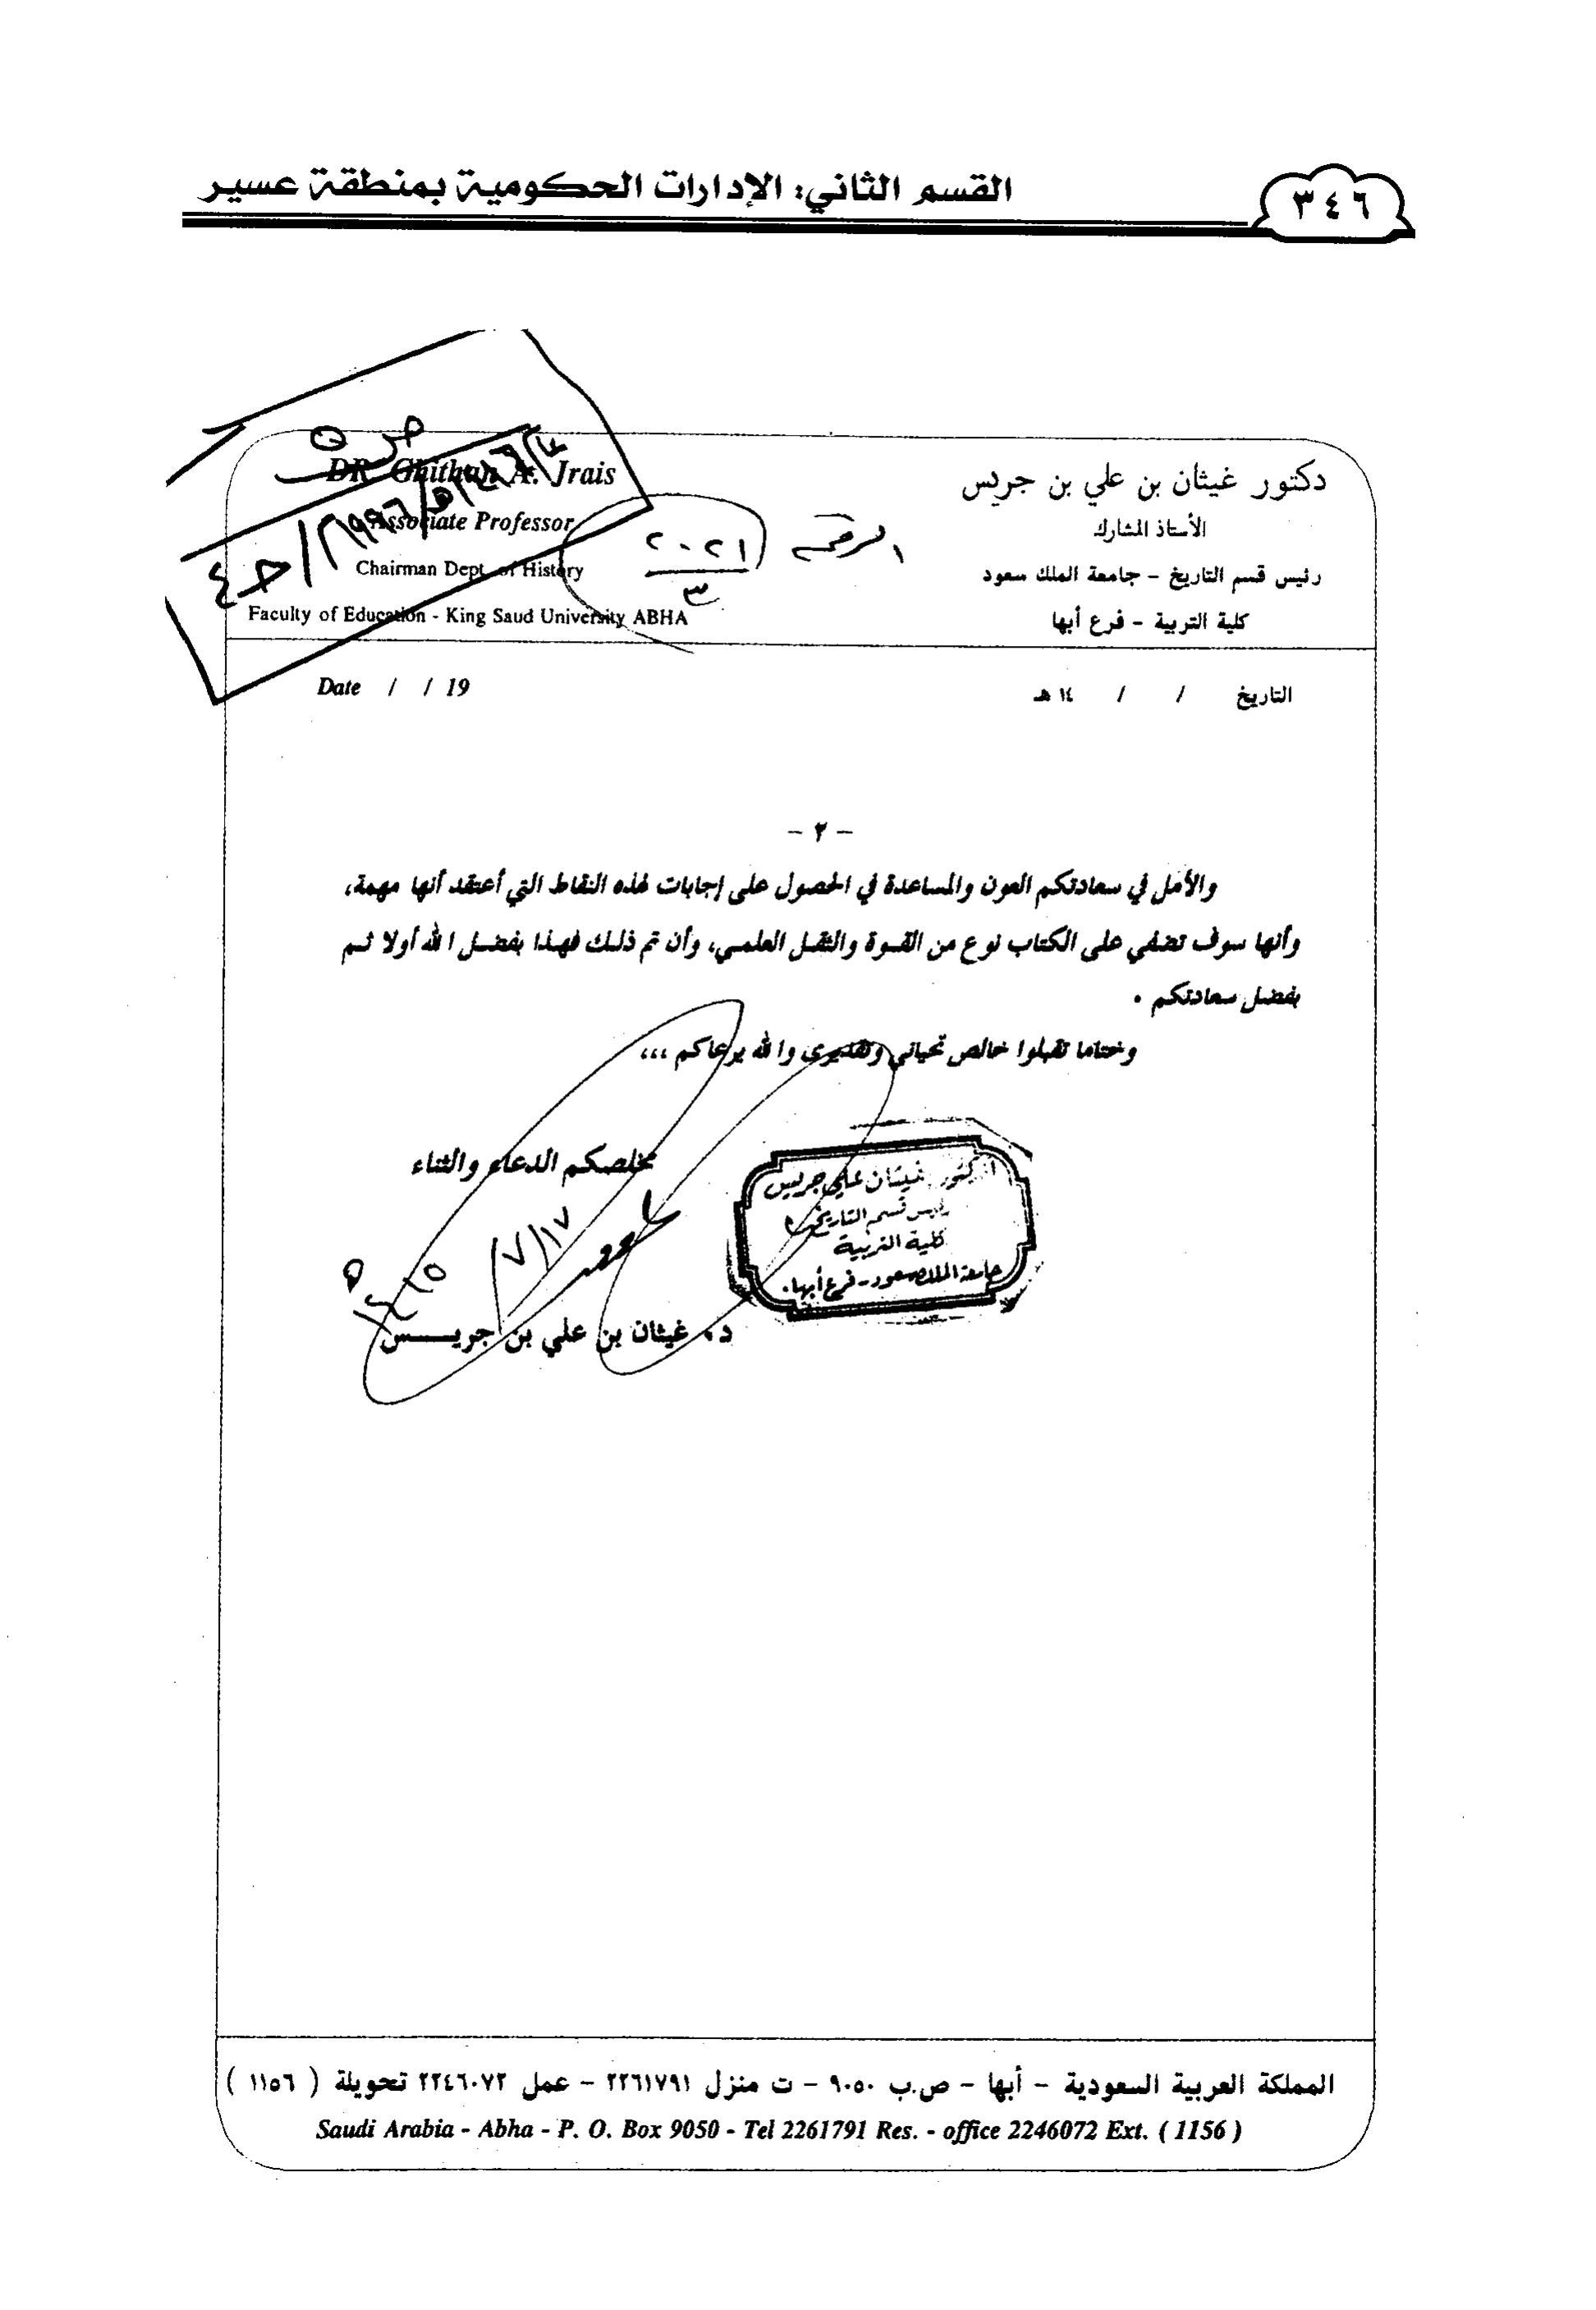 القسم الثاني: الإدارات الحكومية بمنطقة عسير
٣٤٦
دكتور غيثان بن علي بن جريس
الأستاذ المشارك
رئيس قسم التاريخ - جامعة الملك سعود
كلية التربية - فرع أبها
DR. Ghithan A. Jrais
Associate Professor
Chairman Dept. of History
Faculty of Education - King Saud University ABHA
الرقم ٢٠٢١
٣
التاريخ / / ١٤ هـ
Date / / 19
- ٢ -
والأمل في سعادتكم العون والمساعدة في الحصول على إجابات لهذه النقاط التي أعتقد أنها مهمة،
وأنها سوف تضفي على الكتاب نوع من القوة والثقل العلمي، وأن تم ذلك فهذا بفضل الله أولا ثم
بفضل سعادتكم .
وختاما تقبلوا خالص تحياتي وتقديرى والله يرعاكم ،،،
مخلصكم الدعاء والثناء
١٧/٧/
١٤١٥ هـ
د. غيثان بن علي بن جريـــس
الدكتور غيثان علي جريس
رئيس قسم التاريخ
كلية التربية
جامعة الملك سعود - فرع أبها.
المملكة العربية السعودية - أبها - ص.ب ٩٠٥٠ - ت منزل ٢٢٦١٧٩١ - عمل ٢٢٤٦٠٧٢ تحويلة ( ١١٥٦ )
Saudi Arabia - Abha - P. O. Box 9050 - Tel 2261791 Res. - office 2246072 Ext. ( 1156 )